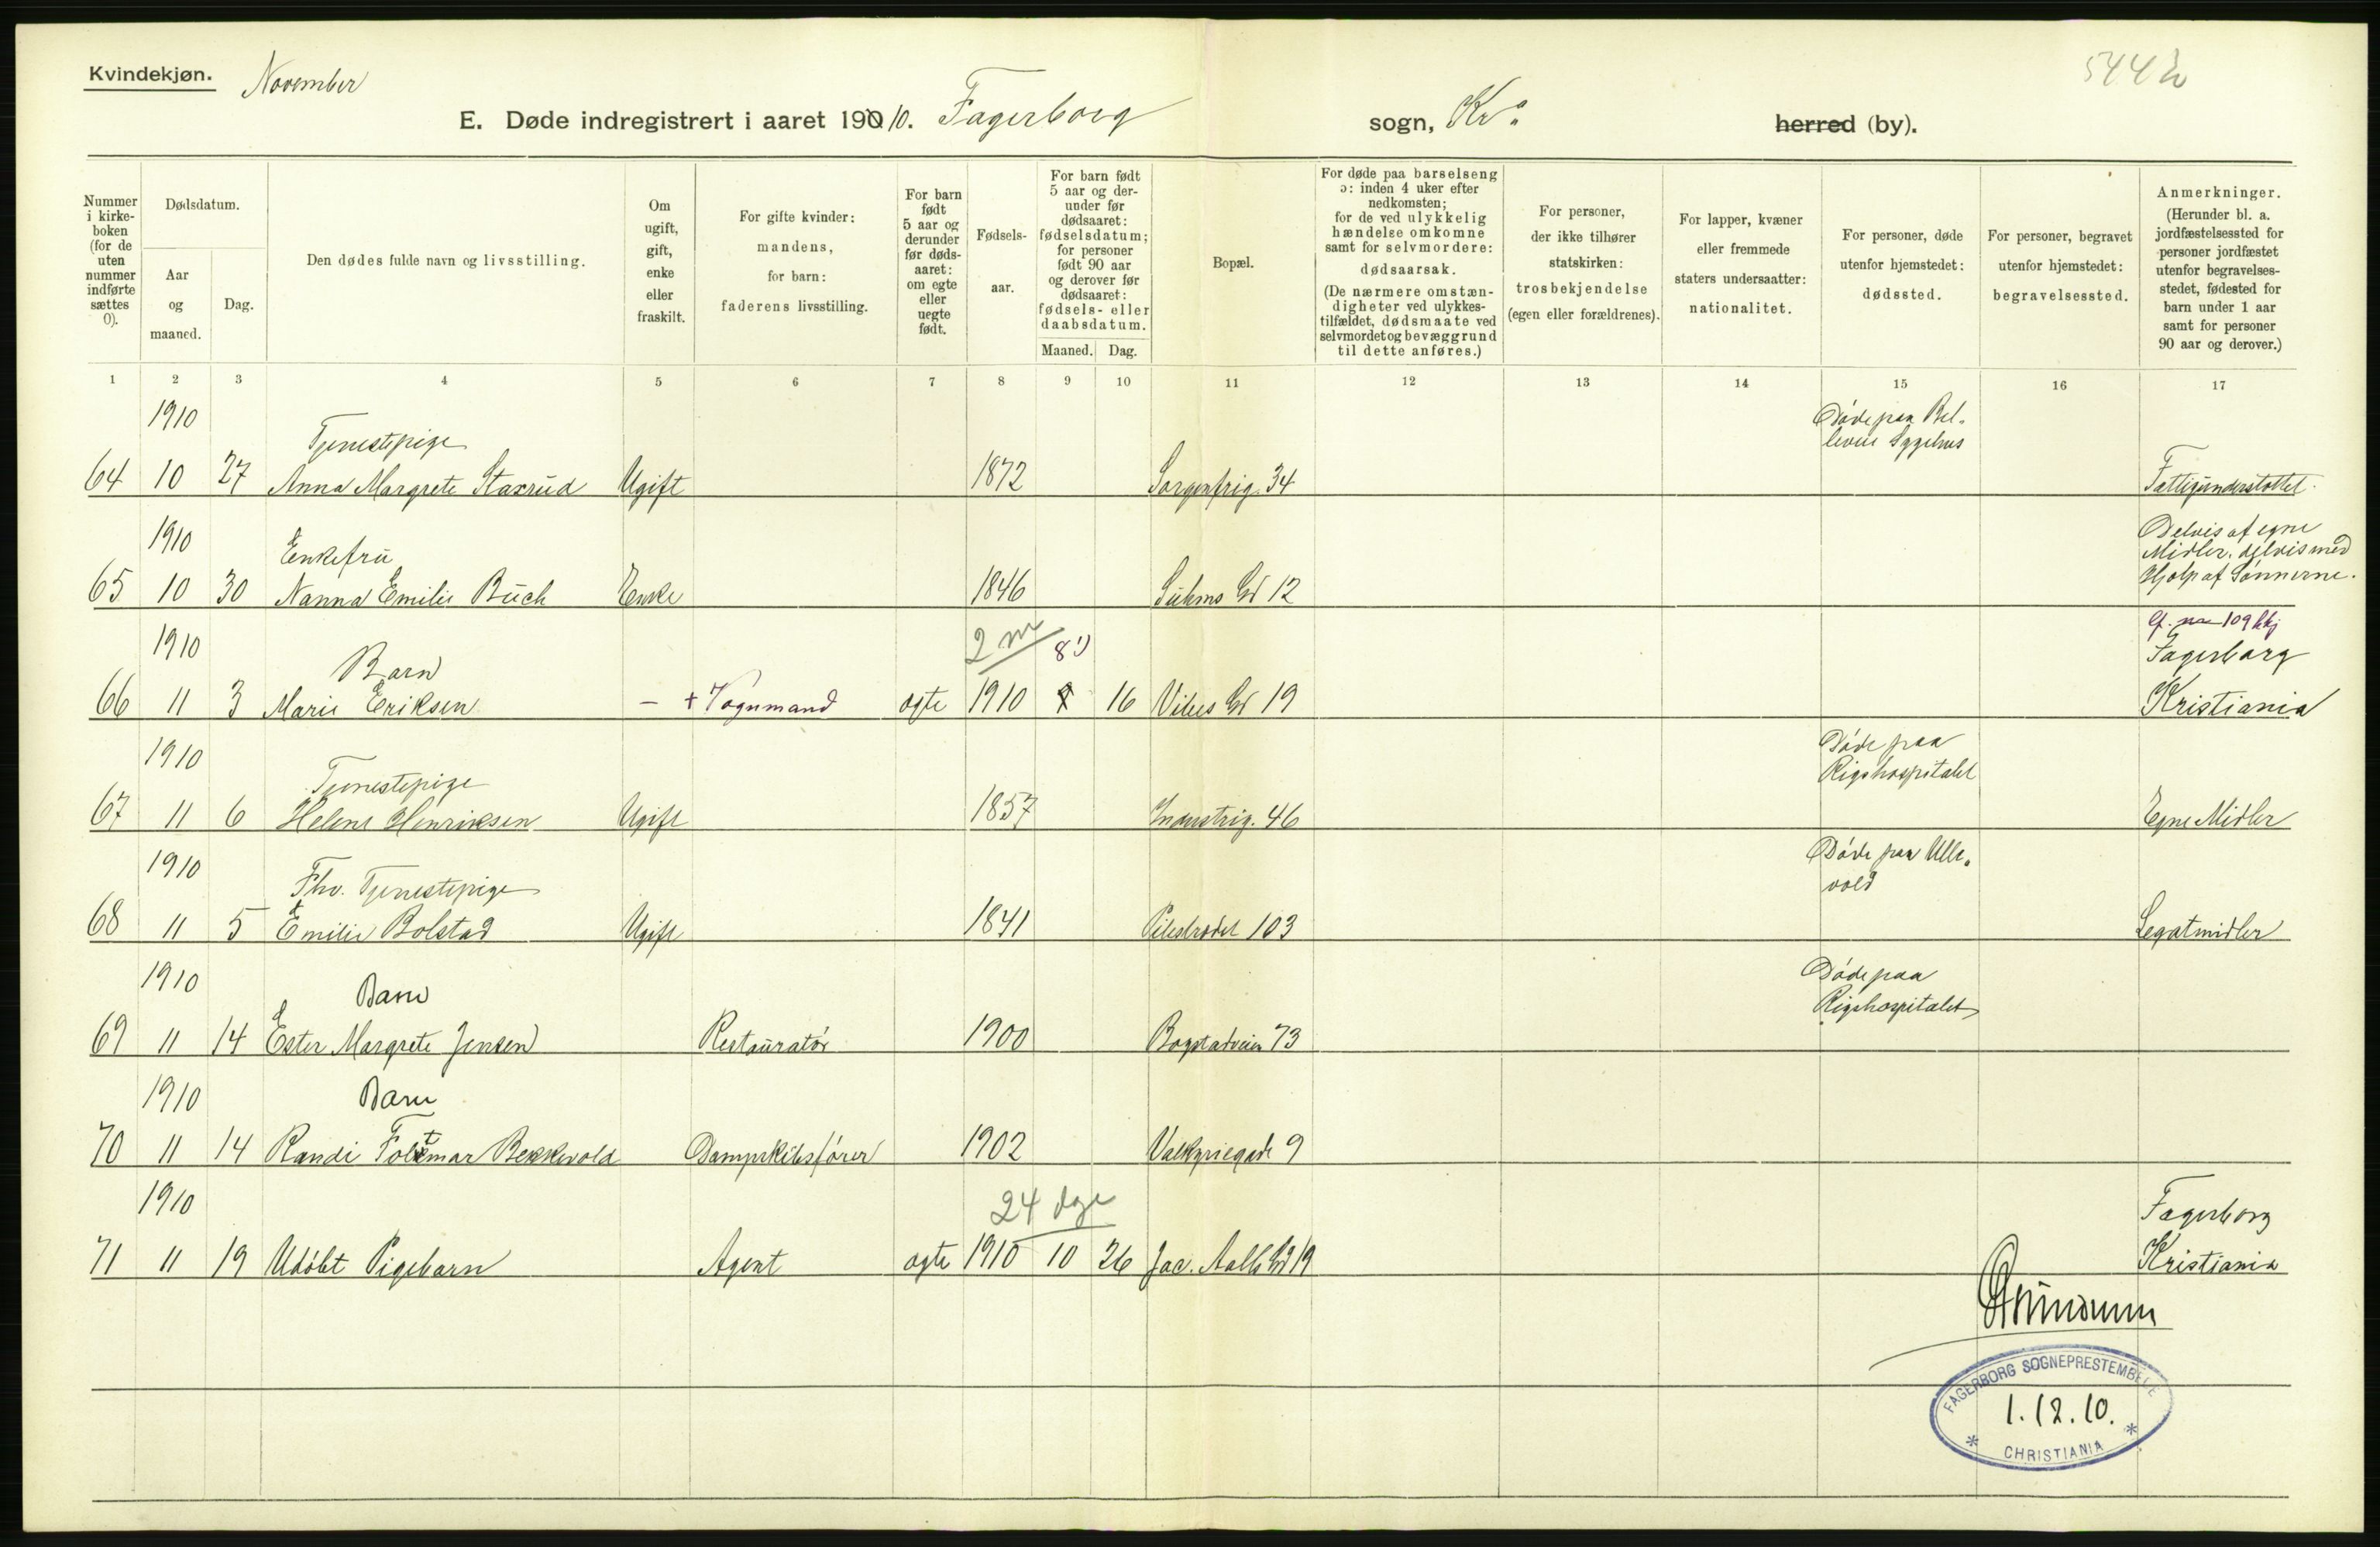 Kvindekjøn.
November
E. Døde indregistrert i aaret 1910. Fagerborg sogn, Kr.a herred (by).
Nummer i kirkeboken (for de uten nummer indførte sættes 0).
Dødsdatum.
Aar og maaned.
Dag.
Den dødes fulde navn og livsstilling.
Om ugift, gift, enke eller fraskilt.
For gifte kvinder: mandens, for barn: faderens livsstilling.
For barn født 5 aar og derunder før dødsaaret: om egte eller uegte født.
Fødselsaar.
For barn født 5 aar og derunder før dødsaaret: fødselsdatum; for personer født 90 aar og derover før dødsaaret: fødsels- eller daabsdatum.
Maaned.
Dag.
Bopæl.
For døde paa barselseng ɔ: inden 4 uker efter nedkomsten; for de ved ulykkelig hændelse omkomne samt for selvmordere: dødsaarsak. (De nærmere omstændigheter ved ulykkestilfældet, dødsmaate ved selvmordet og bevæggrund til dette anføres.)
For personer, der ikke tilhører statskirken: trosbekjendelse (egen eller forældrenes).
For lapper, kvæner eller fremmede staters undersaatter: nationalitet.
For personer, døde utenfor hjemstedet: dødssted.
For personer, begravet utenfor hjemstedet: begravelsessted.
Anmerkninger. (Herunder bl. a. jordfæstelsessted for personer jordfæstet utenfor begravelsesstedet, fødested for barn under 1 aar samt for personer 90 aar og derover.)
1 2 3 4 5 6 7 8 9 10 11 12 13 14 15 16 17
1910 Tjenestepige Døde paa Bellevue Sygehus
64 10 27 Anna Margrete Staxrud Ugift 1872 Sorgenfrig. 34 Fattigunderstøttet.
1910 Enkefru Delvis af egne Midler, delvis med Hjælp af Sønnerne.
65 10 30 Nanna Emilie Buch Enke 1846 Suhms Gd 12
1910 Barn 2 m 8 109 Fagerborg
66 11 3 Marie Eriksen — + Vognmand egte 1910 16 Vibes Gd 19 Kristiania
1910 Tjenestepige Døde paa Rigshospitalet
67 11 6 Helene Henriksen Ugift 1857 Industrig. 46 Egne Midler
1910 Fhv. Tjenestepige Døde paa Ullevold
68 11 5 Emilie Bolstad Ugift 1841 Pilestrædet 103 Legatmidler
1910 Barn Døde paa Rigshospitalet
69 11 14 Ester Margrete Jensen Restauratør 1900 Bogstadveien 73
1910 Barn
70 11 14 Randi Bekkevold Dampskibsfører 1902 Valkyriegade 9
1910 24 dge Fagerborg
71 11 19 Udøbt Pigebarn Agent egte 1910 10 26 Jac. Aalls Gd 19 Kristiania
FAGERBORG SOGNEPRESTEMBEDE
1.12.10.
* CHRISTIANIA *